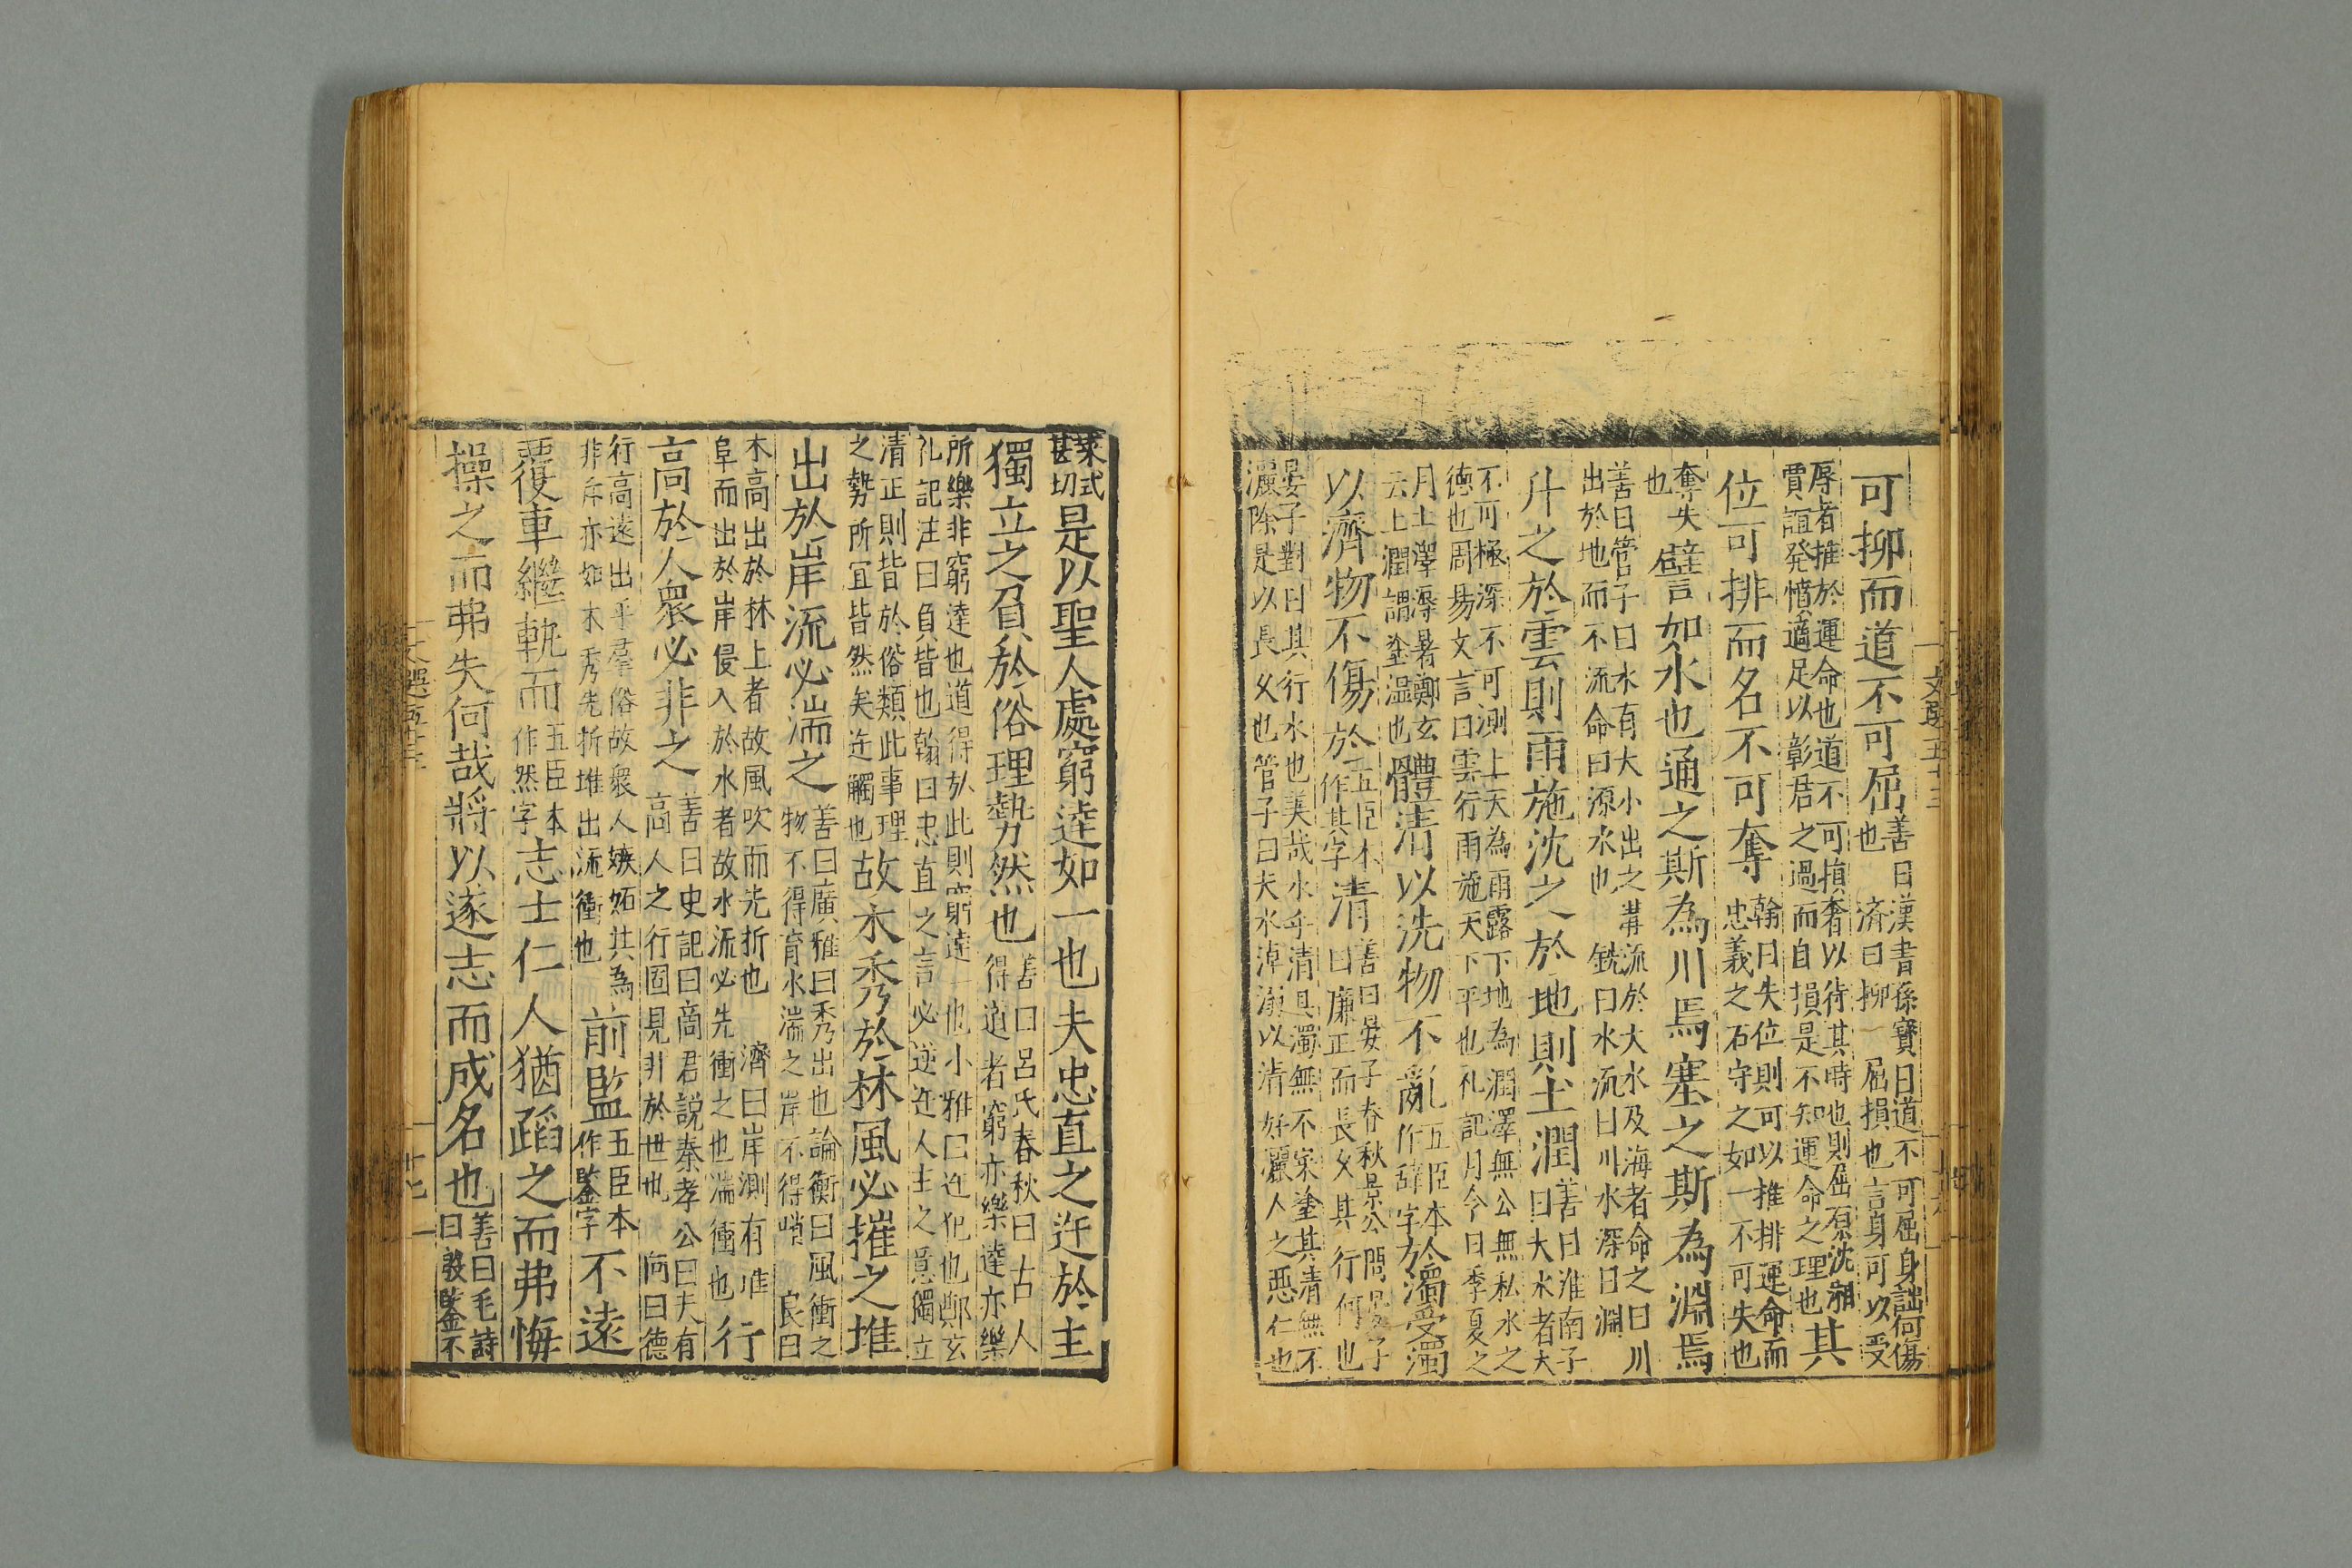 可抑而道不可屈善曰漢書孫寶曰道不可屈身詘何傷也 濟曰抑 屈損也言身可以受
辱者推於運命也道不可損者以待其時也則屈原沈湘賈誼発憤適足以彰君之過而自損是不知運命之理也其
位可排而名不可奪翰曰失位則可以推排運命而忠義之石守之如一不可失也
奪失也譬如水也通之斯為川焉塞之斯為淵焉
善曰管子曰水有大小出之溝流於大水及海者命之曰川出於地而不流命曰源水也 銑曰水流曰川水深曰淵
升之於雲則雨施沈之於地則土潤善曰淮南子曰大水者大
不可極深不可測上天為雨露下地為潤澤無公無私水之德也周易文言曰雲行雨施天下平也礼記月令曰季夏之
月土潤溽暑鄭玄云土潤謂塗溫也體清以洗物不亂五臣本作辭字於濁受濁
以濟物不傷於五臣本作其字清善曰晏子春秋景公問晏子曰廉正而長久其行何也
晏子對曰其行水也美哉水乎清其濁無不𡩋塗其清無不灑除是以長久也管子曰夫水淖溺以清好灑人之惡仁也
文選五十三
十六
菜式甚切是以聖人處窮達如一也夫忠直之迕於主
獨立之負於俗理勢然也善曰呂氏春秋曰古人得道者窮亦樂達亦樂
所樂非窮達也道得於此則窮達一也小雅曰迕犯也鄭玄礼記注曰負背也翰曰忠直之言必逆迕人主之意獨立
清正則皆於俗類此事理之勢所宜皆然矣迕觸也故木秀於林風必摧之堆
出於岸流必湍之善曰廣雅曰秀出也論衡曰風衝之物不得育水湍之岸不得峭 良曰
木高出於林上者故風吹而先折也 濟曰岸測有堆阜而出於岸侵入於水者故水流必先衝之也湍衝也行
高於人衆必非之善曰史記曰商君説秦孝公曰夫有高人之行固見非於世也 向曰德
行高遠出乎羣俗故衆人嫉妬共為非斥亦如木秀先折堆出流衝也前監五臣本作鍳字不遠
覆車繼軌而五臣本作然字志士仁人猶蹈之而弗悔
操之而弗失何哉將以遂志而成名也善曰毛詩曰殷鍳不
文選五十三
十七